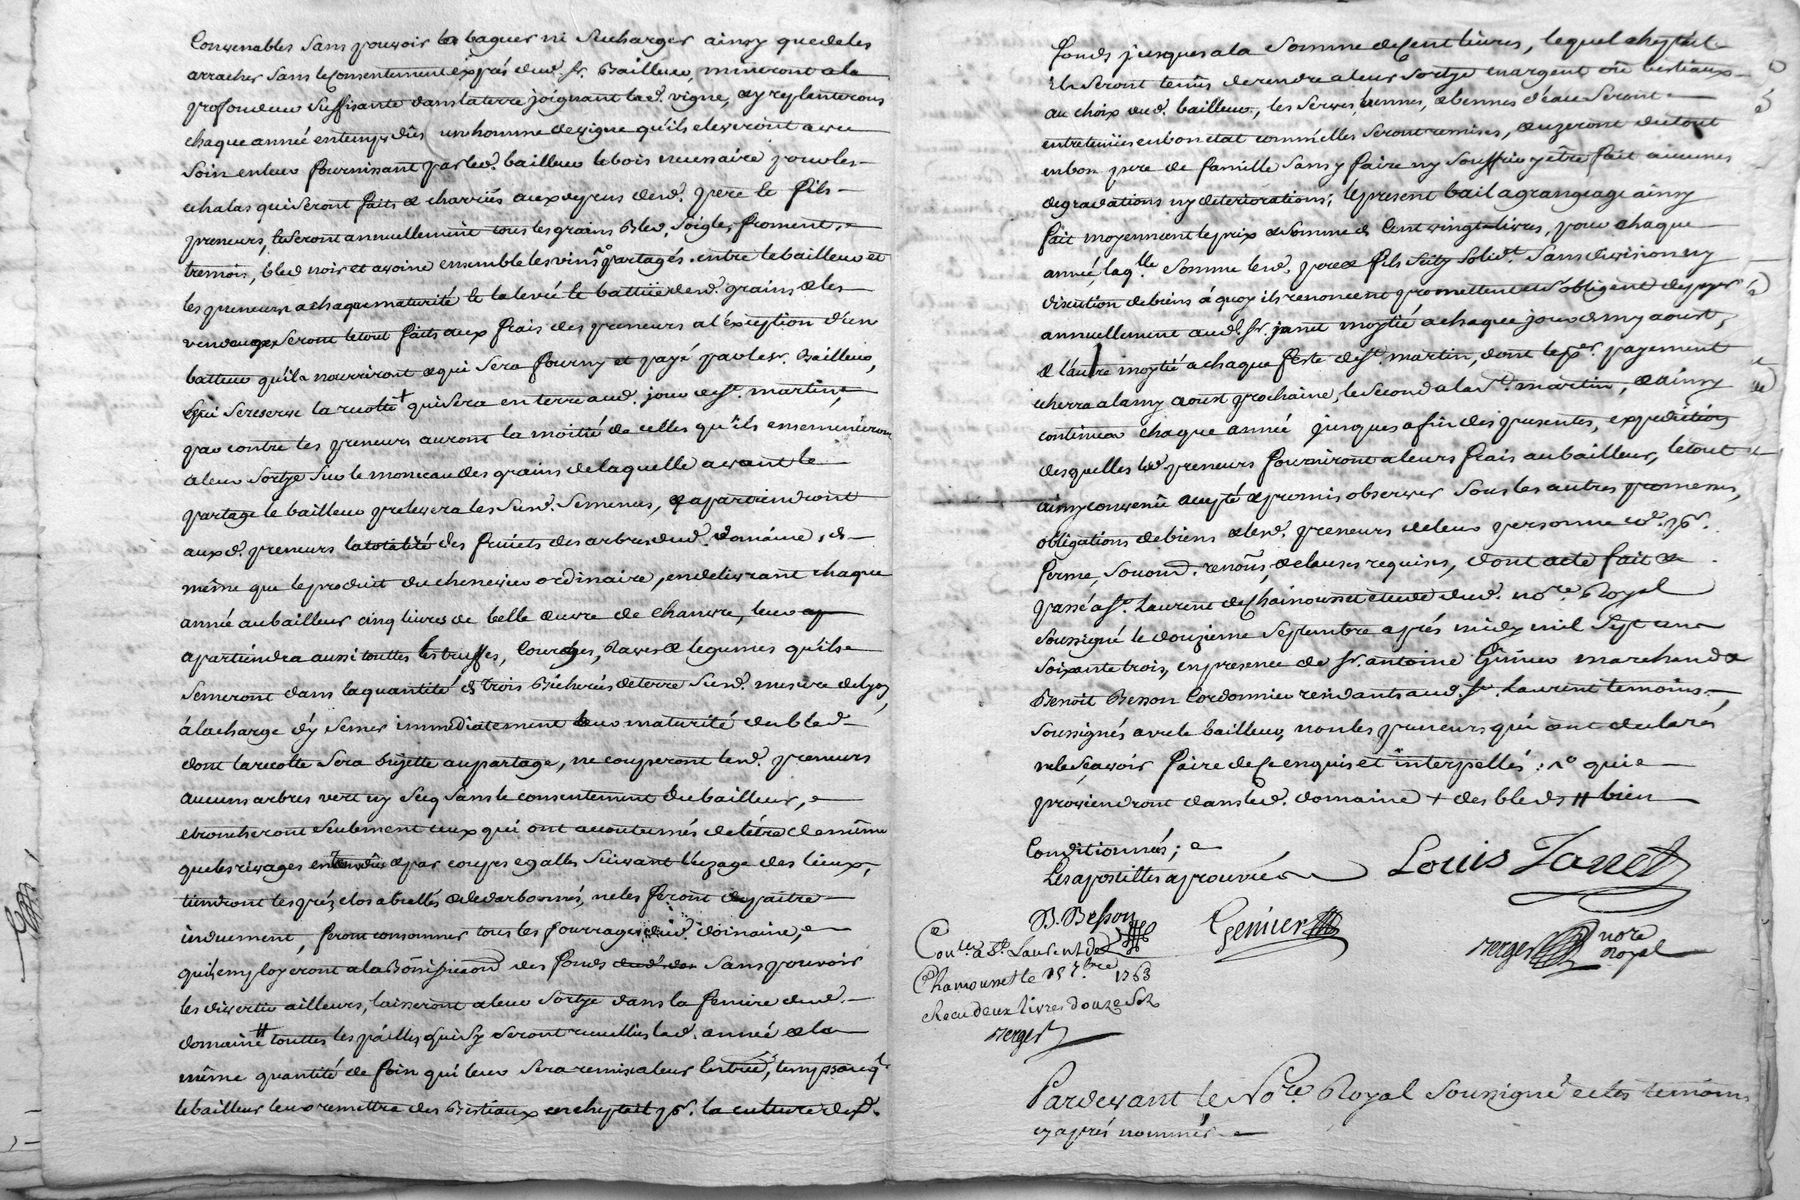 Convenables sans pouvoir les baguer ni surcharger ainsy que de les
arracher sans le consentement exprés dud. sr. Bailleur, mineront a la
profondeur suffisante dans la terre joignant lad. vigne, & y replanteront
chaque année en temps dûs un homme de vigne qu'ils eleveront avec
soin en leur fournissant par led. bailleur le bois necessaire pour les
echalas qui seront faits & charriés aux depens desd. pere & fils
preneurs, & seront annuellement tous les grains Bled, soigle, froment,
tremois, bled noir et avoine ensemble les vins ^o partagés entre le bailleur et
les preneurs a chaque maturité & la levée & batture desd. grains & les
vendanges seront le tout faits aux frais des preneurs a l'exception d'un
batteur qu'ils nourriront & qui sera fourny et payé par le sr. Bailleur,
qui se reserve la recolte + qui sera en terre aud. jour de st. martin,
par contre les preneurs auront la moitié de celles qu'ils ensemenceront
a leur sortye sur le monceau des grains de laquelle avant le
partage le bailleur prelevera les susd. semences, & apartiendront
auxd. preneurs la totalité des fruits des arbres dud. domaine, de
même que le produit du chenevier ordinaire, en delivrant chaque
année au bailleur cinq livres de belle œuvre de chanvre, leur
apartiendra aussi touttes les truffes, courges, raves & legumes qu'ils
semeront dans la quantité de trois Bicherées de terre susd. mesure de Lyon,
à la charge d'y semer immediatement leur maturité du bled
dont la recolte sera sujette au partage, ne couperont led. preneurs
aucuns arbres vert ny secq sans le consentement du bailleur,
ebroncheront seulement ceux qui ont accoutumés de l'étre de même
que les rivages en tems dû & par coupes egalles suivant l'uzage des lieux,
tiendront les prés clos abrellés & desarbonnés, ne les feront depaitre
induement, feront consommer tous les fourrages dud. domaine,
qu'ils employeront a la Bonification des fonds sans pouvoir
les divertir ailleurs, laisseront a leur sortye dans la feniere dud.
domaine # touttes les pailles qui s'y seront recueillies lad. année & la
même quantité de foin qui leur sera remise a leur entrée,
le bailleur leur remettra des Bestiaux en cheptait pr. la culture desd.
fonds jusques a la somme de Cent livres, lequel cheptait
ils seront tenus de rendre a leur sortye en argent ou bestiaux
au choix dud. bailleur, les serves, & bennes d'eau seront
entretenües en bon etat comm'elles seront remises, & uzeront du tout
en bon pere de famille sans y faire ny souffrir y être fait aucunes
degradations ny deteriorations; le present bail a grangeage ainsy
fait moyennent le prix & somme de Cent vingt livres, pour chaque
année, laqlle. somme led. pere & fils solidt. sans division ny
discution de biens à quoy ils renoncent promettent & s'obligent de payer
annuellement aud. sr. janet moytié a chaque jour de my aoust,
& l'autre moytié a chaque feste de st. martin, dont le per. payement
echerra a la my aoust prochaine, le second a la st. martin, & ainsy
continuer chaque année jusques a fin des presentes, expedition
desquelles led. preneurs fourniront a leurs frais au bailleur, le tout
ainsy convenü accepté & promis observer sous les autres promesses,
obligations de biens & lesd. preneurs de leur personne pr.
ferme, renons. & clauses requises, dont acte fait &
passé a st. Laurent de Chamousset etude dud. nore. Royal
soussigné le douzieme septembre aprés midy mil sept cent
soixante trois, en presence de sr. antoine Génier marchand &
Benoit Besson Cordonnier residants aud. st. Laurent temoins
soussignés avec le bailleur, non les preneurs qui ont declarés
ne le sçavoir faire de ce enquis et interpellés: ^o qui
proviendront dans led. domaine + des bleds # bien
Conditionnés;
Les apostilles aprouvées
Louis Janet
B. Besson
Genier
Verger nore Royal
Conlé. a St. Laurent de
Chamousset le 15 7bre 1763
Receu deux livres douze Sols
Verger
Pardevant le Nore Royal soussigné et les temoins
cy aprés nommés